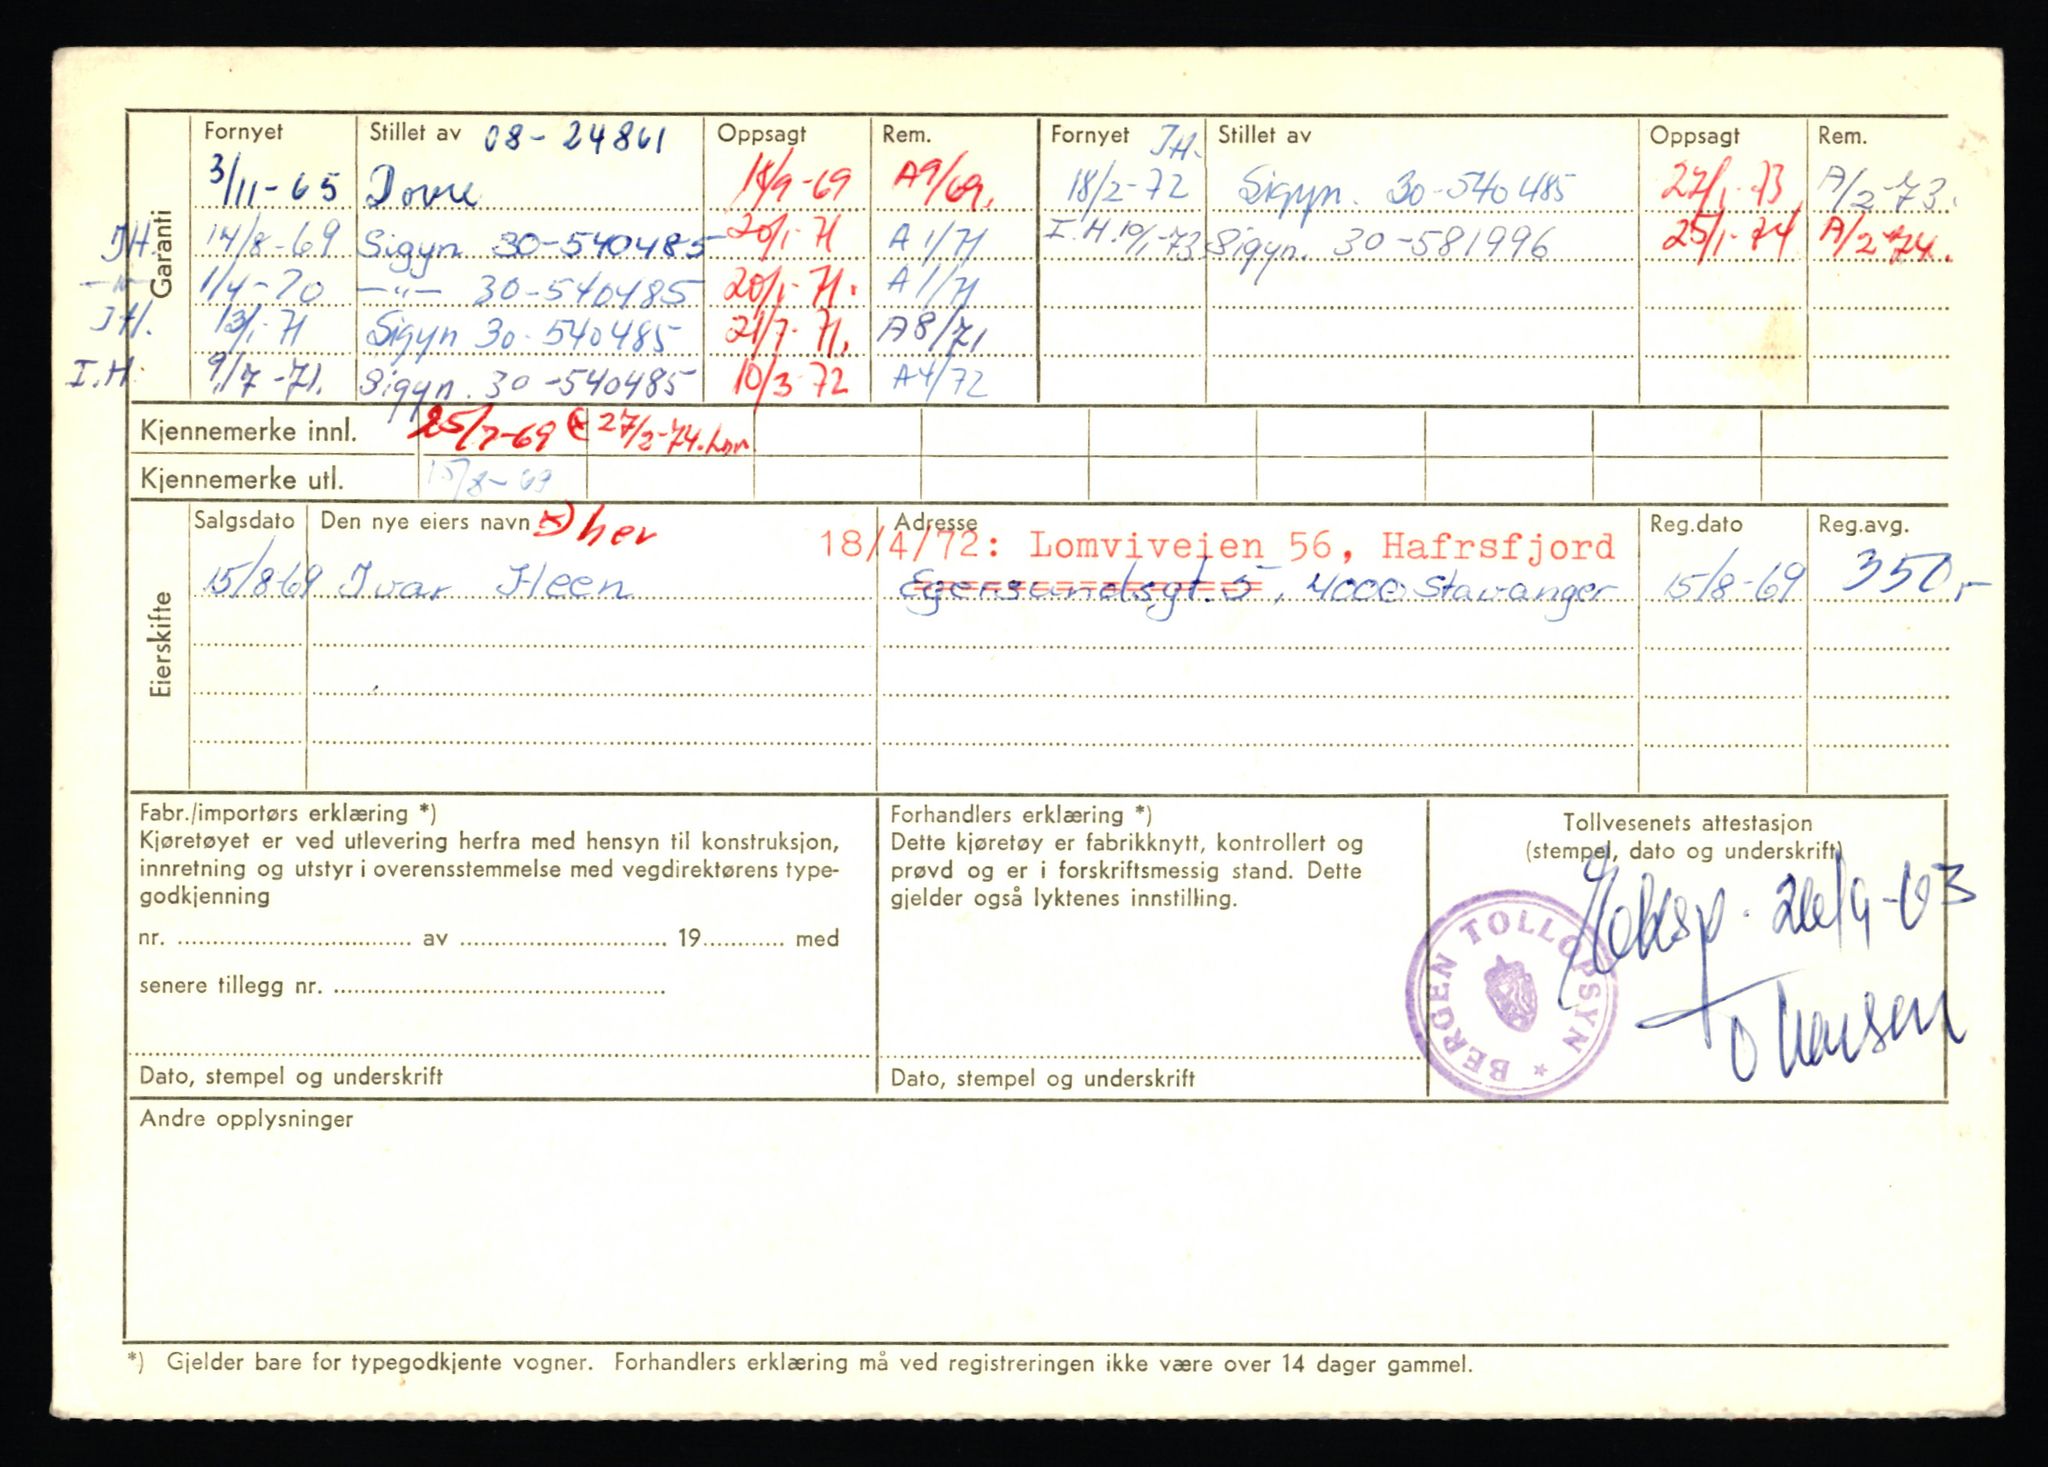 Garanti
Fornyet Stillet av 08-24861 Oppsagt Rem. Fornyet I.H. Stillet av Oppsagt Rem.
3/11-65 Dovre 18/9-69 A9/69. 18/2-72 Sigyn. 30-540485 27/1-73 A/2-73.
I.H. 14/8-69 Sigyn 30-540485 20/1-71 A 1/71 I.H. 10/1-73 Sigyn. 30-581996 25/1-74 A/2-74.
-"- 1/4-70 -"- 30-540485 20/1-71. A 1/71
I.H. 13/1-71 Sigyn 30-540485 21/7-71. A8/71
I.H. 9/7-71. Sigyn. 30-540485 10/3-72 A4/72
Kjennemerke innl. 25/7-69 27/2-74.
Kjennemerke utl. 15/8-69
Eierskifte
Salgsdato Den nye eiers navn x) her Adresse Reg.dato Reg.avg.
18/4/72: Lomviveien 56, Hafrsfjord
15/8-69 Ivar Heen Egersundsgt. 5, 4000 Stavanger 15/8-69 350,-
Fabr./importørs erklæring *)
Kjøretøyet er ved utlevering herfra med hensyn til konstruksjon,
innretning og utstyr i overensstemmelse med vegdirektørens type-
godkjenning
nr. .......... av .......... 19.......... med
senere tillegg nr. ..........
Dato, stempel og underskrift
Forhandlers erklæring *)
Dette kjøretøy er fabrikknytt, kontrollert og
prøvd og er i forskriftsmessig stand. Dette
gjelder også lyktenes innstilling.
Dato, stempel og underskrift
Tollvesenets attestasjon
(stempel, dato og underskrift)
26/9-63
BERGEN TOLLOPSYN *
Andre opplysninger
*) Gjelder bare for typegodkjente vogner. Forhandlers erklæring må ved registreringen ikke være over 14 dager gammel.